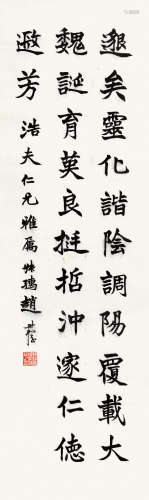 邈矣靈化諧陰調陽覆載大
魏誕育英良挺哲沖邃仁德
遐芳
浩夫仁兄雅屬 趙